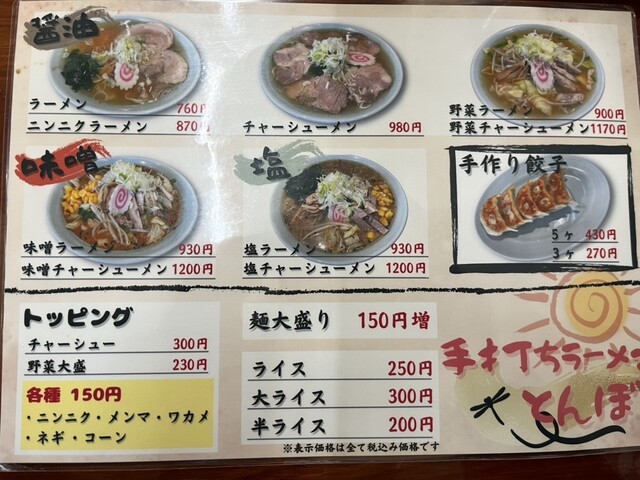 醤油
ラーメン 760円
ニンニクラーメン 870円
チャーシューメン 980円
野菜ラーメン 900円
野菜チャーシューメン 1170円
味噌
味噌ラーメン 930円
味噌チャーシューメン 1200円
塩
塩ラーメン 930円
塩チャーシューメン 1200円
手作り餃子
5ヶ 430円
3ヶ 270円
トッピング
チャーシュー 300円
野菜大盛 230円
各種 150円
・ニンニク・メンマ・ワカメ
・ネギ・コーン
麺大盛り 150円増
ライス 250円
大ライス 300円
半ライス 200円
※表示価格は全て税込み価格です
手打ちラーメン
とんぼ